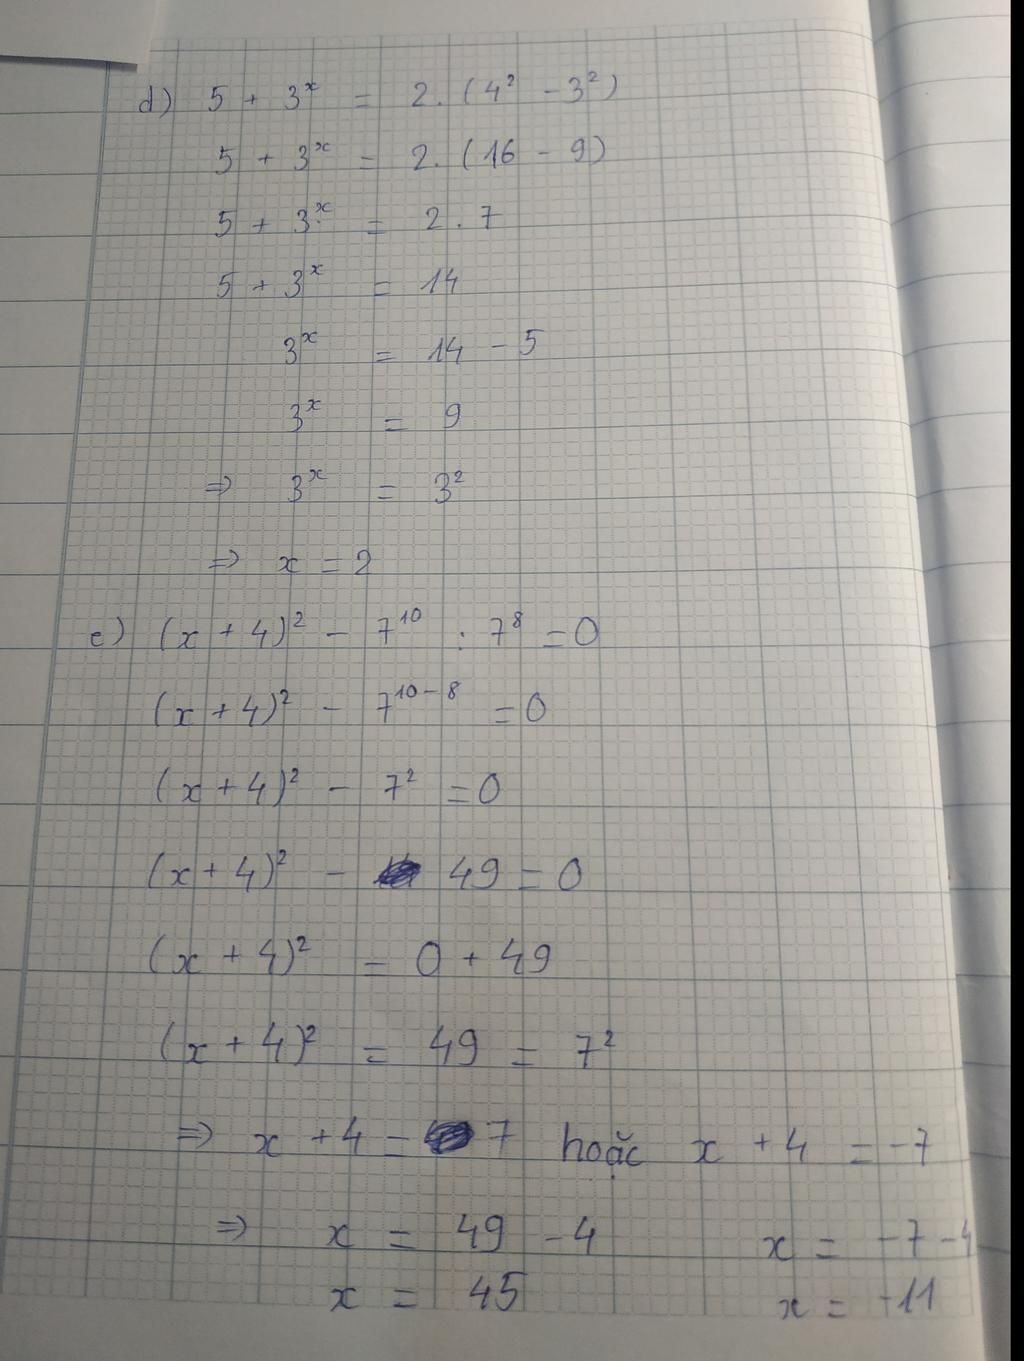 d) 5 + 3ˣ = 2.(4² - 3²)
5 + 3ˣ = 2.(16 - 9)
5 + 3ˣ = 2.7
5 + 3ˣ = 14
3ˣ = 14 - 5
3ˣ = 9
⇒ 3ˣ = 3²
⇒ x = 2
e) (x + 4)² - 7¹⁰ : 7⁸ = 0
(x + 4)² - 7¹⁰⁻⁸ = 0
(x + 4)² - 7² = 0
(x + 4)² - 49 = 0
(x + 4)² = 0 + 49
(x + 4)² = 49 = 7²
⇒ x + 4 = 7 hoặc x + 4 = -7
⇒ x = 49 - 4 x = -7 - 4
x = 45 x = -11